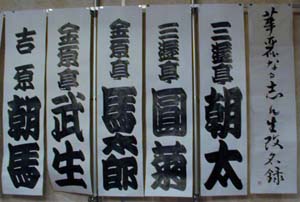 華麗なる志ん生改名録
三遊亭 朝太
三遊亭 圓菊
金原亭 馬太郎
金原亭 武生
吉原 朝馬